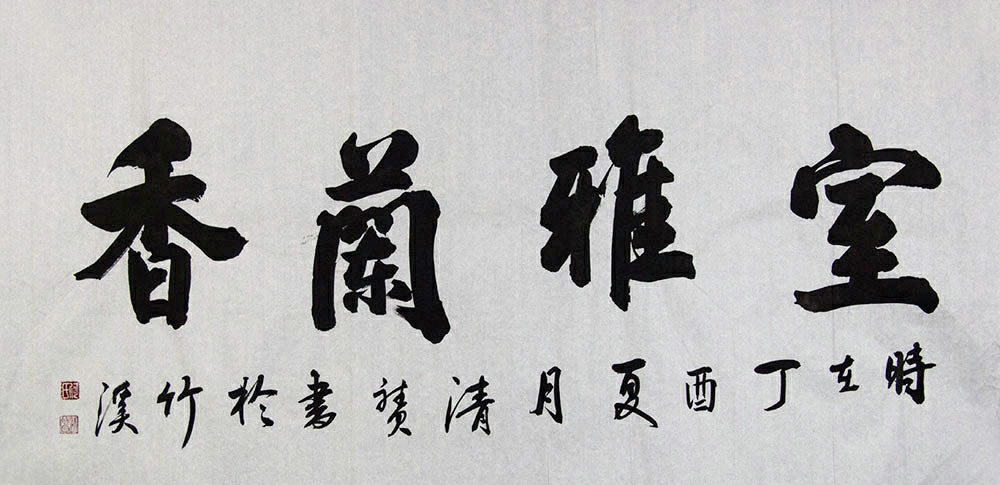 室雅蘭香
時在丁酉夏月清贇書於竹溪